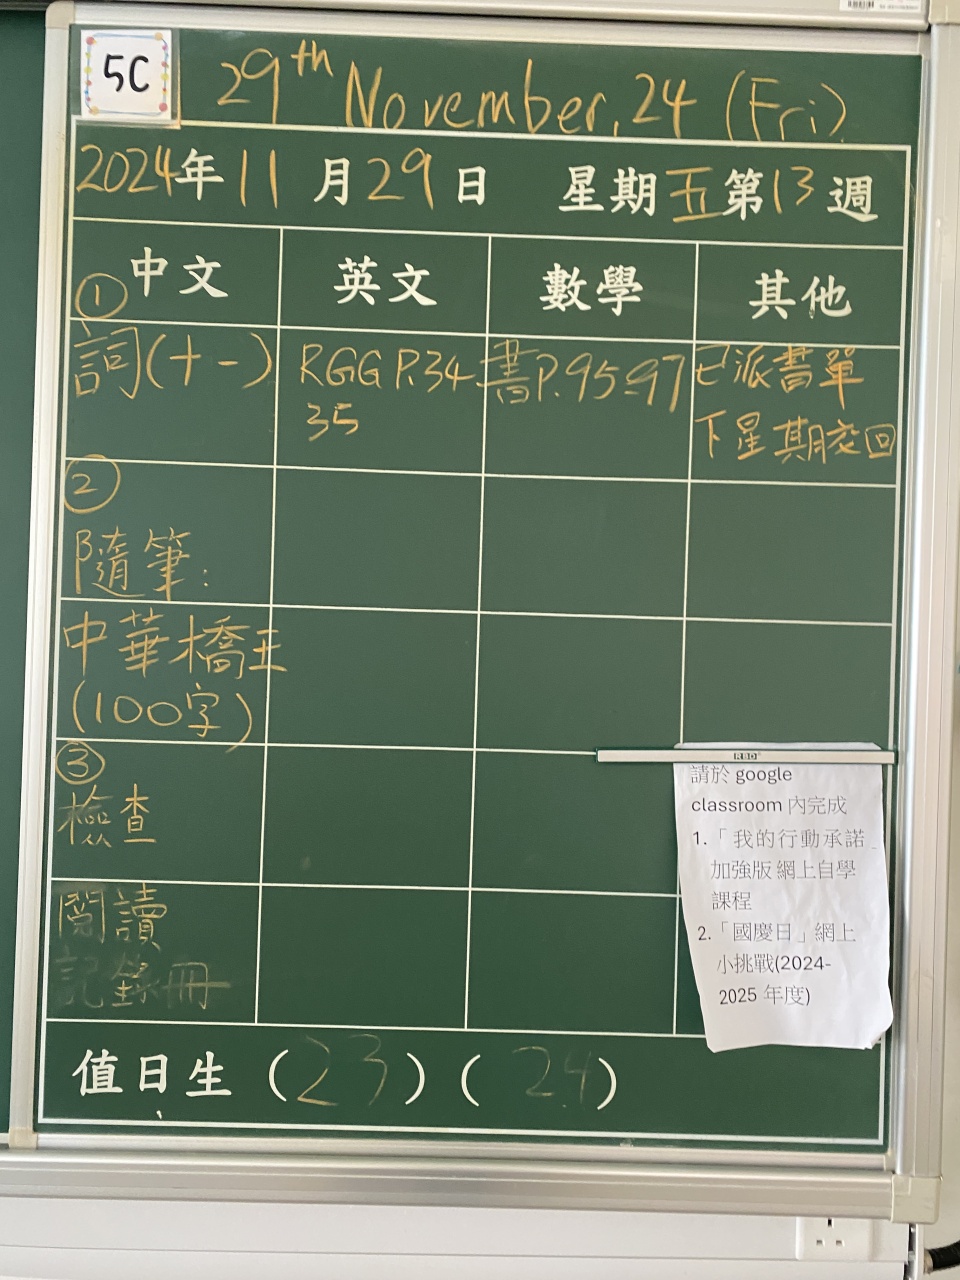 5C
29th November, 24 (Fri)
2024年11月29日 星期五第13週
中文 英文 數學 其他
①
詞(十一)
RGG P.34-
35
書P.95-97
已派書單
下星期交回
②
隨筆:
中華橋王
(100字)
③
檢查
閱讀
記錄冊
RBD
請於 google
classroom 內完成
1.「我的行動承諾
加強版 網上自學
課程
2.「國慶日」網上
小挑戰(2024-
2025 年度)
值日生 (23) (24)